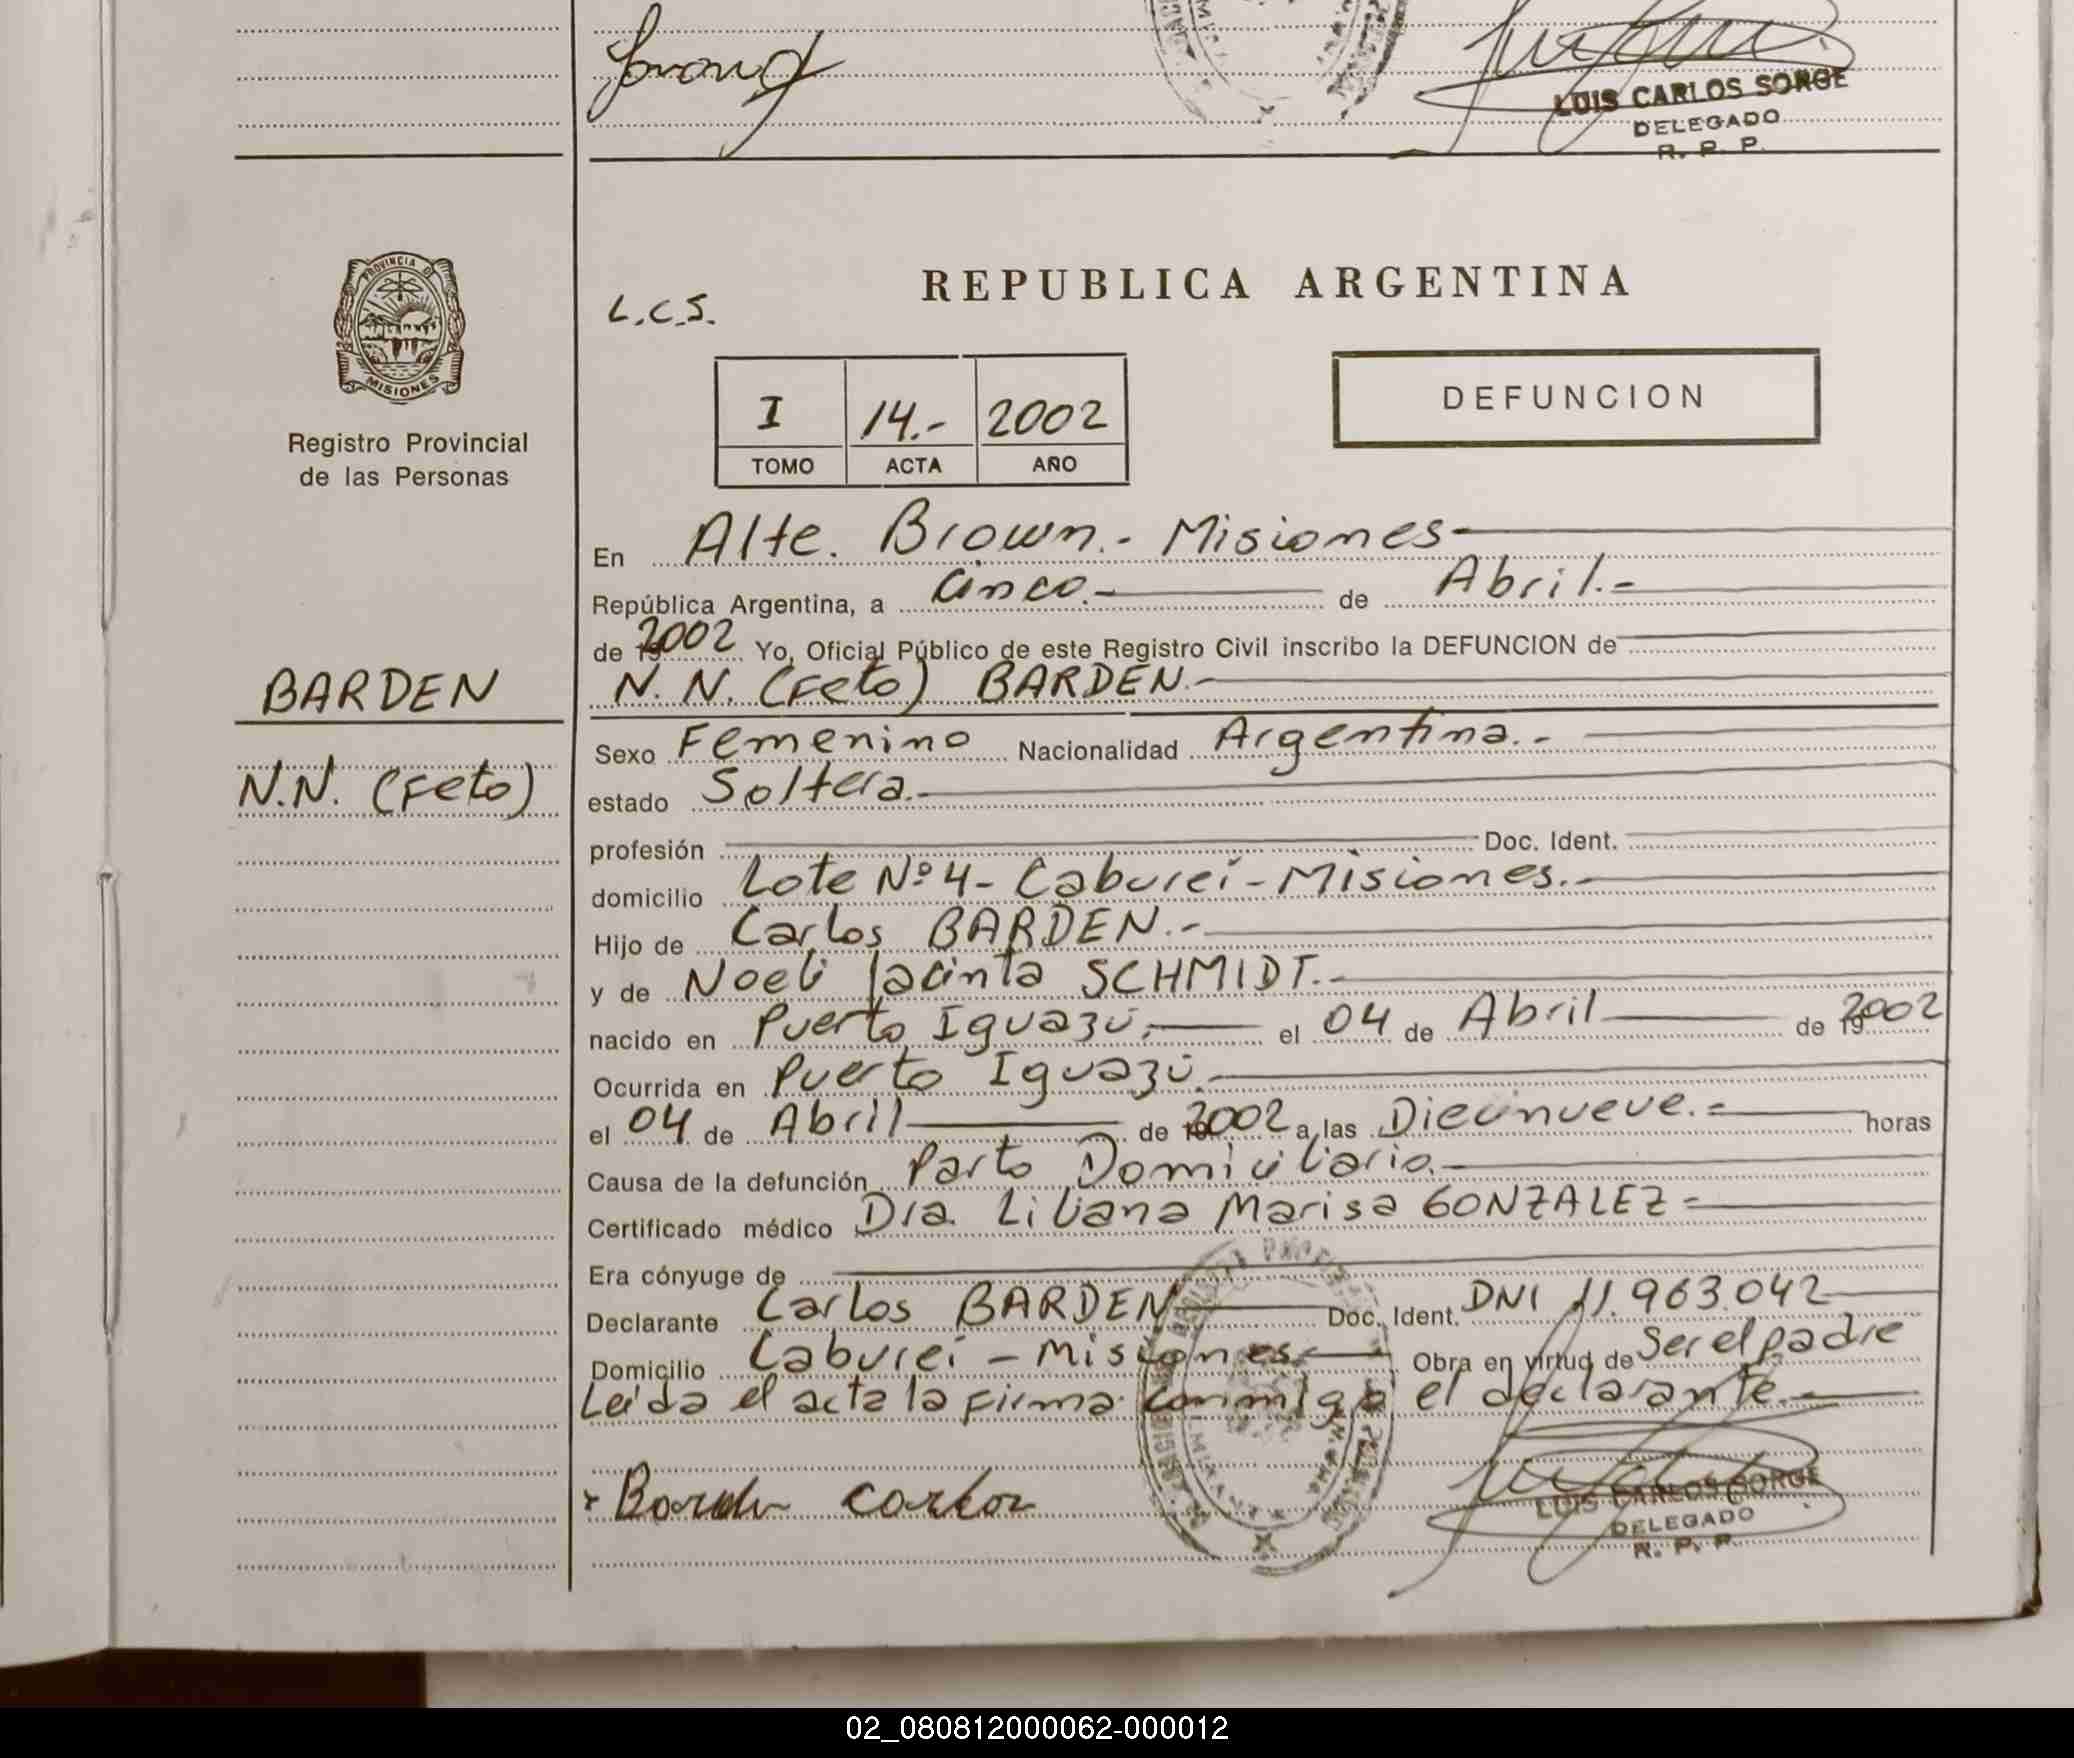 LUIS CARLOS SORGE
DELEGADO
R. P. P.
PROVINCIA DE
MISIONES
Registro Provincial
de las Personas
BARDEN
N.N. (Feto)
L.C.S.
REPUBLICA ARGENTINA
I 14.- 2002
TOMO ACTA AÑO
DEFUNCION
En Alte. Brown.- Misiones
República Argentina, a Cinco.- de Abril.-
de 2002 Yo, Oficial Público de este Registro Civil inscribo la DEFUNCION de
N. N. (Feto) BARDEN.-
Sexo Femenino Nacionalidad Argentina.-
estado Soltera.-
profesión Doc. Ident.
domicilio Lote Nº 4- Cabureí - Misiones.-
Hijo de Carlos BARDEN.-
y de Noeli Jacinta SCHMIDT.-
nacido en Puerto Iguazú.- el 04 de Abril de 2002
Ocurrida en Puerto Iguazú.-
el 04 de Abril de 2002 a las Diecinueve.- horas
Causa de la defunción Parto Domiciliario.-
Certificado médico Dra. Liliana Marisa GONZALEZ-
Era cónyuge de
Declarante Carlos BARDEN Doc. Ident. DNI 11.963.042
Domicilio Cabureí - Misiones.- Obra en virtud de Ser el padre
Leída el acta la firma conmigo el declarante.-
Barden Carlos
LUIS CARLOS SORGE
DELEGADO
R. P. P.
02_080812000062-000012